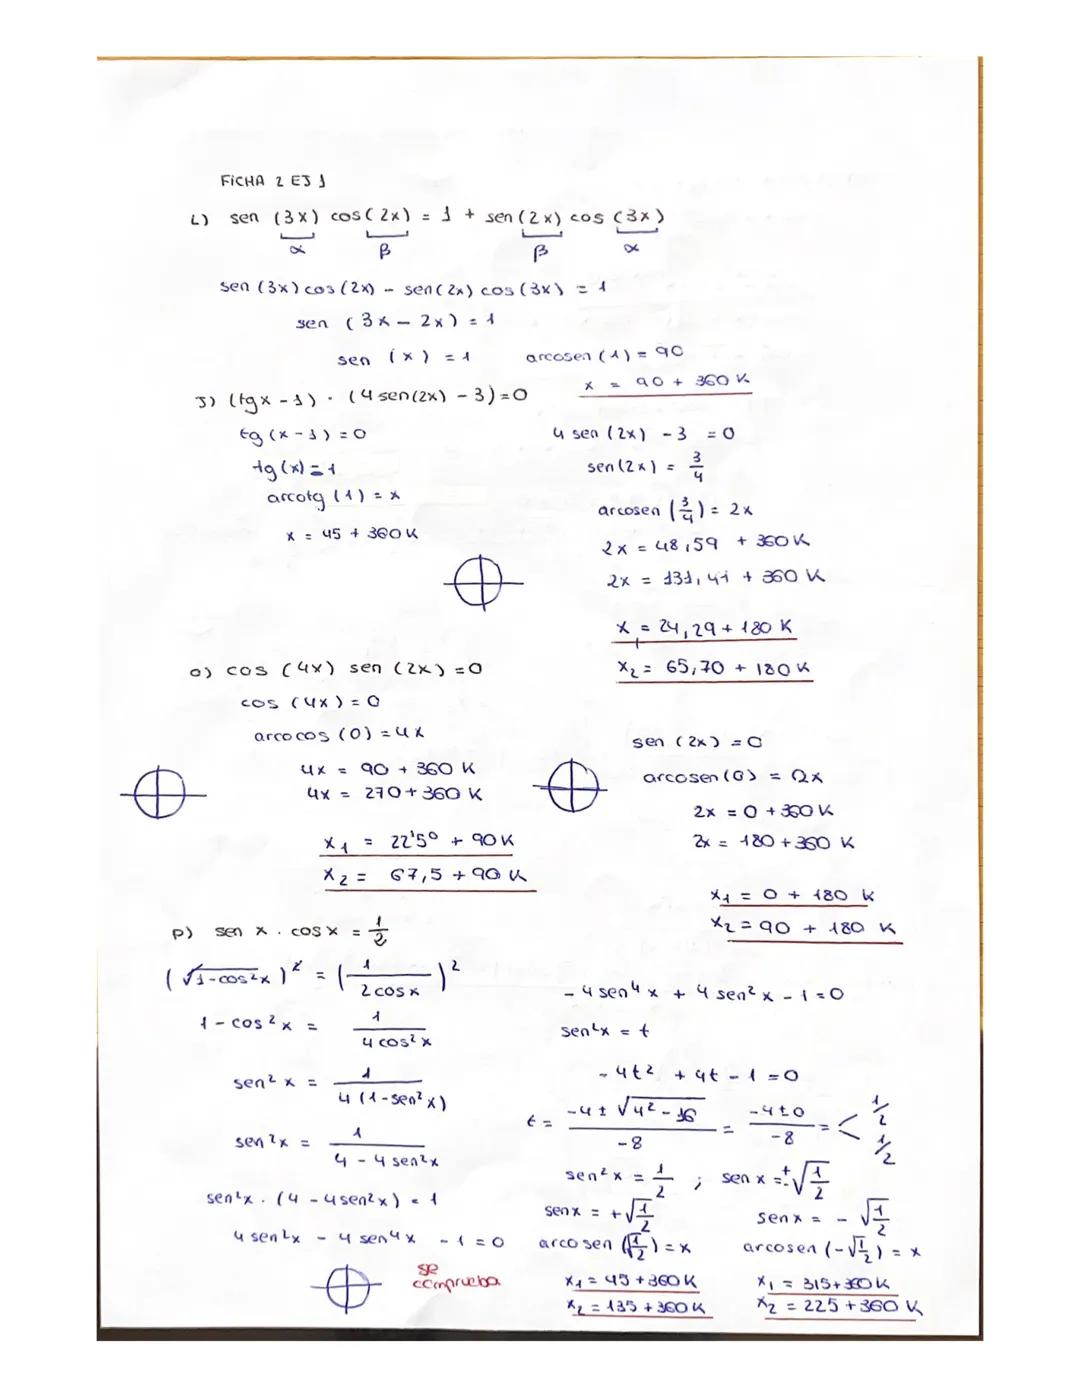 FICHA 2 EJ 1
L) sen (3x) cos(2x) = 1 + sen(2x) cos (3x)
α β β α
sen (3x) cos (2x) - sen(2x) cos (3x) = 1
sen (3x - 2x) = 1
sen (x) = 1 arcosen (1) = 90
x = 90 + 360 K
J) (tgx - 1) · (4 sen(2x) - 3) = 0
tg (x - 1) = 0
tg (x) = 1
arcotg (1) = x
x = 45 + 360 K
4 sen (2x) - 3 = 0
sen (2x) = 3/4
arcosen (3/4) = 2x
2x = 48,59 + 360 K
2x = 131,41 + 360 K
x₁ = 24,29 + 180 K
x₂ = 65,70 + 180 K
o) cos (4x) sen (2x) = 0
cos (4x) = 0
arcocos (0) = 4x
4x = 90 + 360 K
4x = 270 + 360 K
x₁ = 22'5º + 90 K
x₂ = 67,5 + 90 K
sen (2x) = 0
arcosen (0) = 2x
2x = 0 + 360 K
2x = 180 + 360 K
x₁ = 0 + 180 K
x₂ = 90 + 180 K
p) sen x · cos x = 1/2
(√1-cos²x)² = (1/2 cos x)²
1 - cos² x = 1/4 cos² x
sen² x = 1/4 (1 - sen² x)
sen² x = 1/4 - 4 sen² x
sen² x · (4 - 4 sen² x) = 1
4 sen² x - 4 sen⁴ x - 1 = 0
se
comprueba
- 4 sen⁴ x + 4 sen² x - 1 = 0
sen² x = t
- 4t² + 4t - 1 = 0
t = -4 ± √4² - 16/-8 = -4 ± 0/-8 = < 1/2 1/2
sen² x = 1/2 ; sen x = ±√1/2
sen x = +√1/2 sen x = - √1/2
arcosen (√1/2) = x arcosen (-√1/2) = x
x₁ = 45 + 360 K x₁ = 315 + 360 K
x₂ = 135 + 360 K x₂ = 225 + 360 K